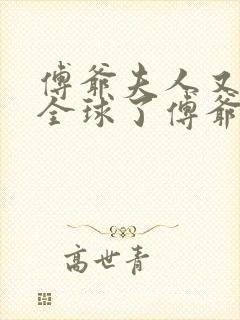 傅爷夫人又
全球了傅爷
高世青